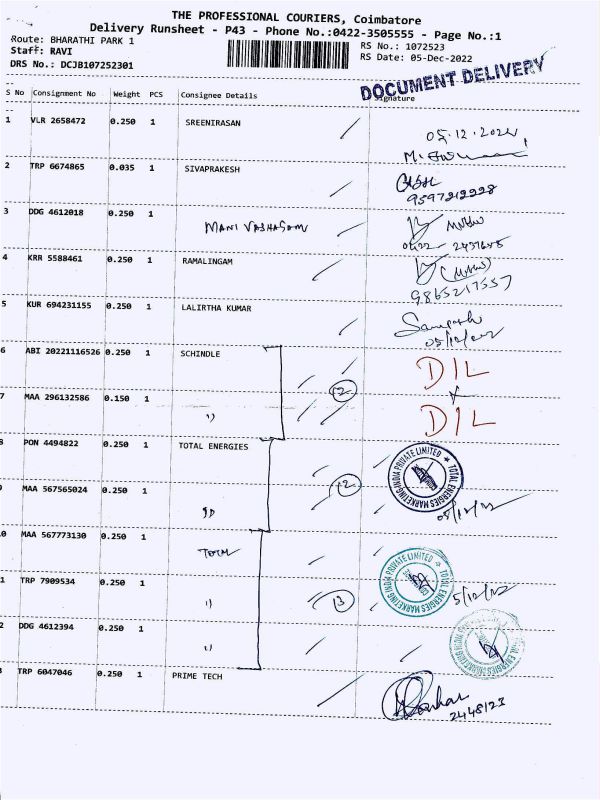 THE PROFESSIONAL COURIERS, Coimbatore
Delivery Runsheet - P43 - Phone No.:0422-3505555 - Page No.:1
Route: BHARATHI PARK 1
RS No.: 1072523
Staff: RAVI
RS Date: 05-Dec-2022
DRS No.: DCJB107252301
DOCUMENT DELIVERY
S No Consignment No Weight PCS Consignee Details Signature
1 VLR 2658472 0.250 1 SREENIRASAN
05.12.2022
2 TRP 6674865 0.035 1 SIVAPRAKESH
9597212228
3 DDG 4612018 0.250 1 MANI VASHAGAM
4 KRR 5588461 0.250 1 RAMALINGAM
9865217557
5 KUR 694231155 0.250 1 LALIRTHA KUMAR
05/12/2022
6 ABI 20221116526 0.250 1 SCHINDLE
DIL
12
7 MAA 296132586 0.150 1 〃
DIL
8 PON 4494822 0.250 1 TOTAL ENERGIES
TOTAL ENERGIES MARKETING INDIA PRIVATE LIMITED
12
MAA 567565024 0.250 1
05/12/22
0 MAA 567773130 0.250 1 TOTAL
TOTAL ENERGIES MARKETING INDIA PRIVATE LIMITED
1 TRP 7909534 0.250 1 〃
13
5/12/22
2 DDG 4612394 0.250 1 〃
TRP 6047046 0.250 1 PRIME TECH
2448123